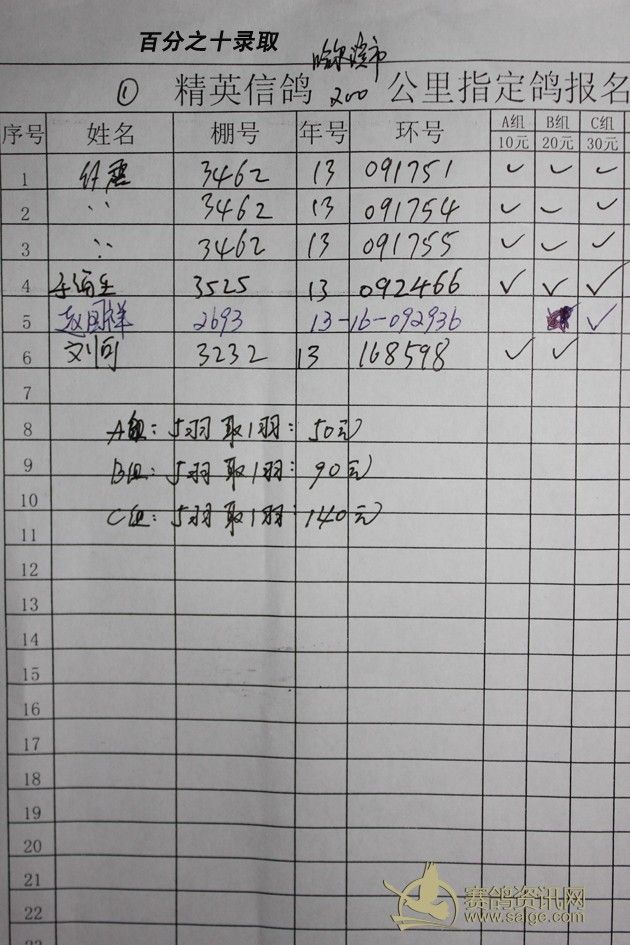 百分之十录取
哈尔滨市
① 精英信鸽 200 公里指定鸽报名
序号 姓名 棚号 年号 环号 A组 10元 B组 20元 C组 30元
1 3462 13 091751 ✓ ✓ ✓
2 〃 3462 13 091754 ✓ ✓ ✓
3 〃 3462 13 091755 ✓ ✓ ✓
4 3525 13 092466 ✓ ✓ ✓
5 赵国祥 2693 13-16-092936 ✓
6 刘同 3232 13 168598 ✓ ✓
7
8 A组：5羽取1羽：50元
9 B组：5羽取1羽：90元
10 C组：5羽取1羽：140元
11
12
13
14
15
16
17
18
19
20
21
22
赛鸽资讯网
www.saige.com